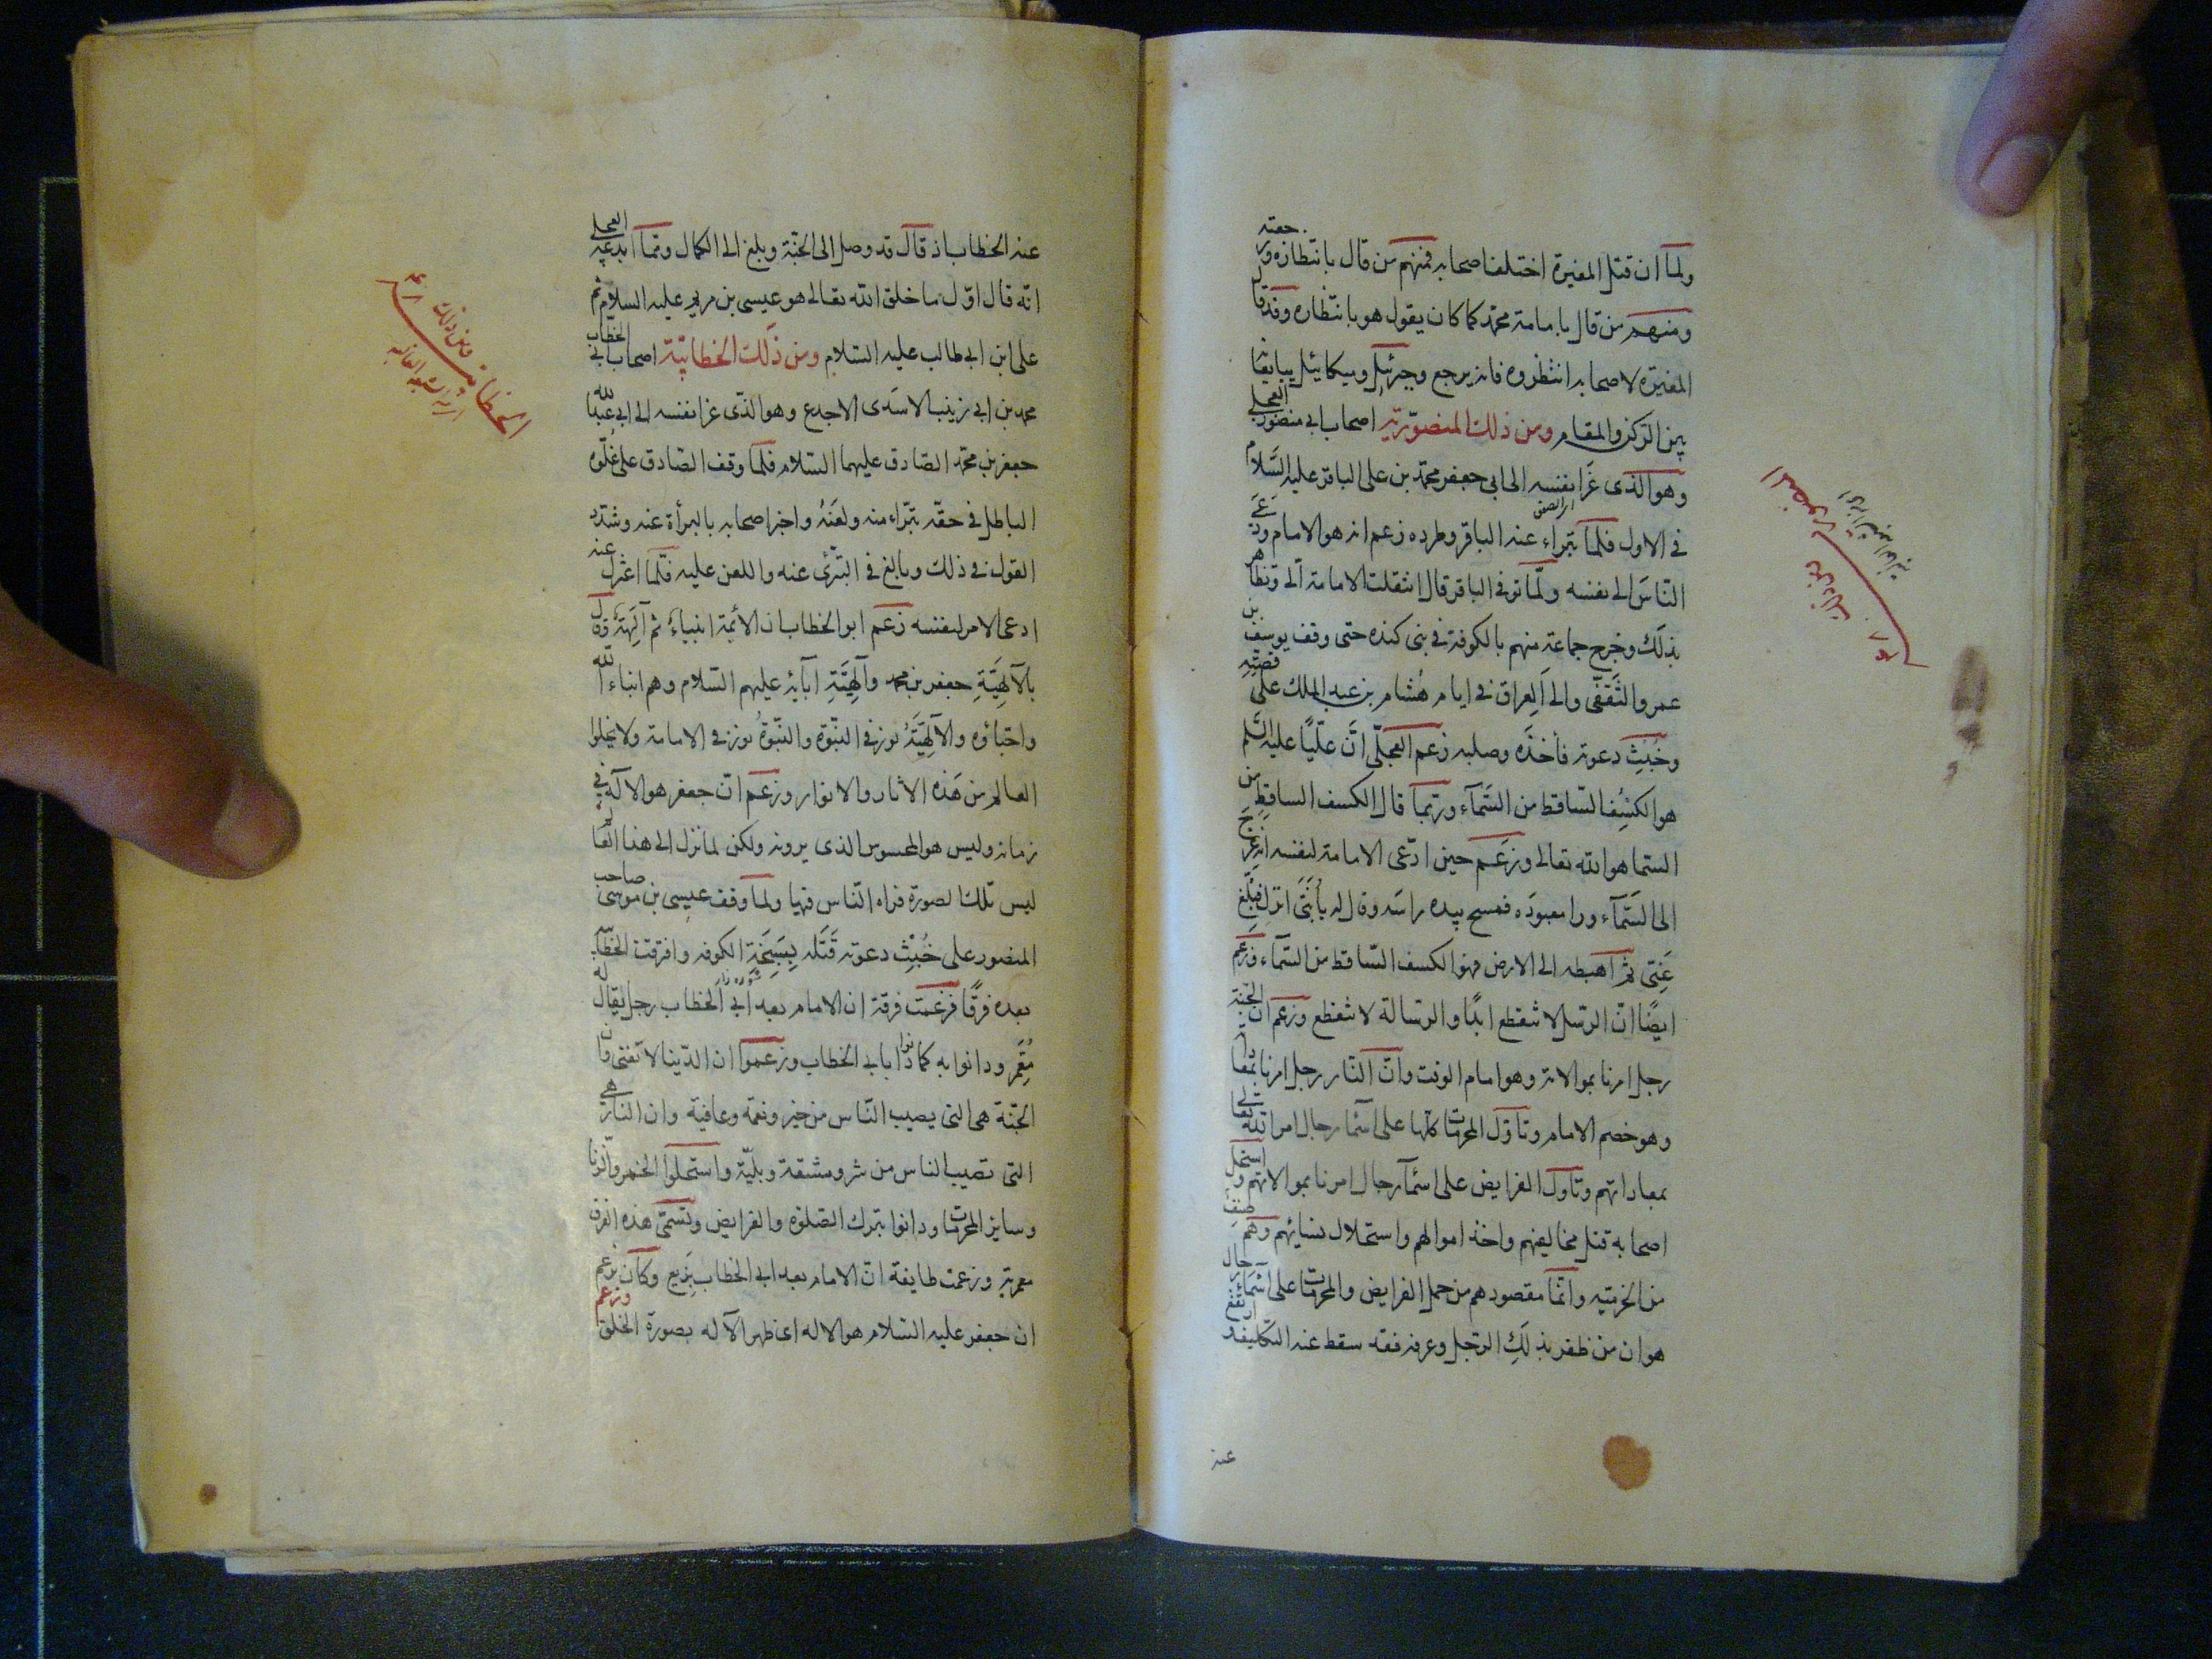 ولما ان قتل المغيرة اختلف اصحابه فمنهم من قال بانتظاره ورجعته
ومنهم من قال بامامة محمد كما كان يقول هو بانتظاره وقد قال
المغيرة لاصحابه انتظروه فانه يرجع وجبرئيل وميكائيل يبايعانه
بين الركن والمقام ومن ذلك المنصورية اصحاب ابي منصور العجلي
وهو الذى عزا نفسه الى ابي جعفر محمد بن على الباقر عليه السلام
في الاول فلما تبراء عنه الباقر وطرده زعم انه هو الامام ودعى
الناس الى نفسه ولما توفى الباقر قال انتقلت الامامة الى وتظاهر
بذلك وخرج جماعة منهم بالكوفة في بنى كنده حتى وقف يوسف بن
عمر والثقفى والى العراق في ايام هشام بن عبد الملك على قصته
وخبث دعوته فأخذه وصلبه زعم العجلى ان عليا عليه السلم
هو الكسف الساقط من السماء وربما قال الكسف الساقط من
السما هو الله تعالى وزعم حين ادعى الامامة لنفسه انه عرج
الى السماء ورا معبوده فمسح بيده راسه وقال له يا بنى انزل فبلغ
عنى ثم اهبطه الى الارض فهو الكسف الساقط من السماء وزعم
ايضا ان الرسل لا تنقطع ابدا والرسالة لا تنقطع وزعم ان الجنة
رجل امرنا بموالاته وهو امام الوقت وان النار رجل امرنا بمعاداته
وهو خصم الامام وتاول المحرمات كلها على اسما رجال امر الله تعالى
بمعاداتهم وتاول الفرايض على اسماء رجال امرنا بموالاتهم واستحل
اصحابه قتل مخالفيهم واخذ اموالهم واستحلال نسايهم وهم صنف
من الخرميه وانما مقصودهم من حمل الفرايض والمحرمات على اسماء رجال
هو ان من ظفر بذلك الرجل وعرفه فقد سقط عنه التكليف وارتفع
عنه
المنصوريه
ومن ذلك
عنه الخطاب اذ قال قد وصل الى الجنة وبلغ الى الكمال ومما ابدعه العجلي
انه قال اول ما خلق الله تعالى هو عيسى بن مريم عليه السلام ثم
على ابن ابى طالب عليه السلام ومن ذلك الخطابية اصحاب ابي الخطاب
محمد بن ابي زينب الاسدى الاجدع وهو الذى عزا نفسه الى ابي عبد الله
جعفر بن محمد الصادق عليهما السلام فلما وقف الصادق على غلوه
الباطل في حقه تبراء منه ولعنه واخبر اصحابه بالبرأة عنه وشدد
القول في ذلك وبالغ في التبرئ عنه واللعن عليه فلما اعتزل عنه
ادعى الامر لنفسه زعم ابو الخطاب ان الأئمة انبياء ثم آلهة وقال
بالآلهية جعفر بن محمد وآلهية آبائه عليهم السلام وهم ابناء الله
واحباؤه والآلهية نور في النبوة والنبوة نور في الامامة ولا يخلوا
العالم من هذه الاثار والانوار وزعم ان جعفر هو الاله في
زمانه وليس هو المحسوس الذى يرونه ولكن لما نزل الى هذا العالم
لبس تلك الصورة فراه الناس فيها ولما وقف عيسى بن موسى صاحب
المنصور على خبث دعوته قتله بسبخة الكوفه وافترقت الخطابية
بعده فرقا فزعمت فرقة ان الامام بعد ابي الخطاب رجل يقال له
معمر ودانوا به كما دانوا بابي الخطاب وزعموا ان الدينا لا تفنى وان
الجنة هى التى يصيب الناس من خير ونعمة وعافية وان النار هي
التى تصيب الناس من شر ومشقة وبلية واستحلوا الخمر والزنا
وساير المحرمات ودانوا بترك الصلوة والفرايض وتسمى هذه الفرقة
معمرية وزعمت طايفة ان الامام بعد ابى الخطاب بزيع وكان يزعم
ان جعفر عليه السلام هو الاله اى ظهر الاله بصورة الخلق وزعم
الخطابيه
ومن ذلك